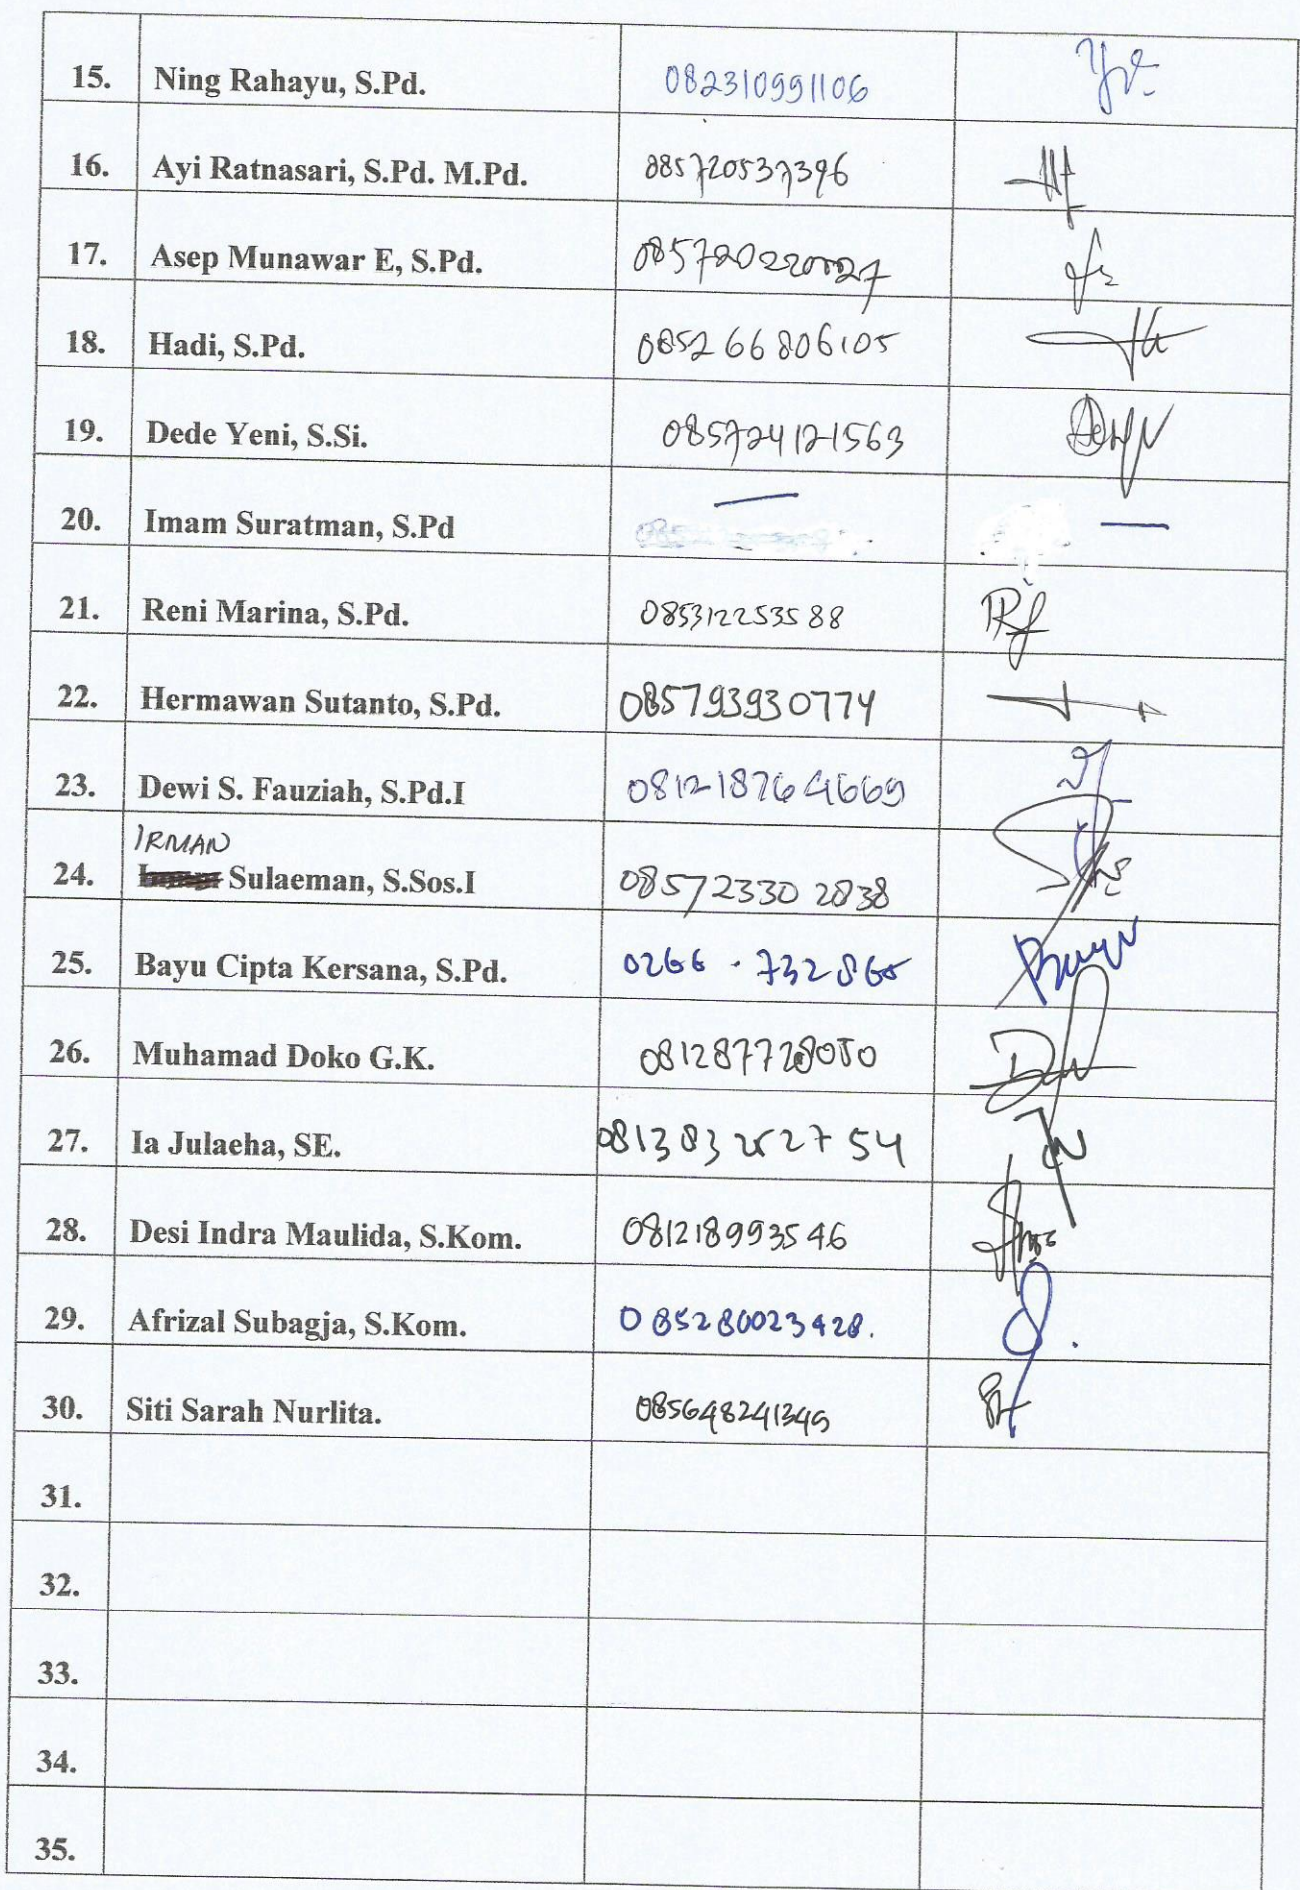 15. Ning Rahayu, S.Pd. 082310991106
16. Ayi Ratnasari, S.Pd. M.Pd. 085720537396
17. Asep Munawar E, S.Pd.
18. Hadi, S.Pd. 085266806105
19. Dede Yeni, S.Si. 085724121563
20. Imam Suratman, S.Pd —  —
21. Reni Marina, S.Pd. 085312253588
22. Hermawan Sutanto, S.Pd. 085793930774
23. Dewi S. Fauziah, S.Pd.I 0812 1876 4669
IRMAN
24. Sulaeman, S.Sos.I 08572330 2838
25. Bayu Cipta Kersana, S.Pd. 0266 - 732865
26. Muhamad Doko G.K. 081287728050
27. Ia Julaeha, SE.
28. Desi Indra Maulida, S.Kom. 081218993546
29. Afrizal Subagja, S.Kom. 085280023428.
30. Siti Sarah Nurlita. 085648241349
31.
32.
33.
34.
35.